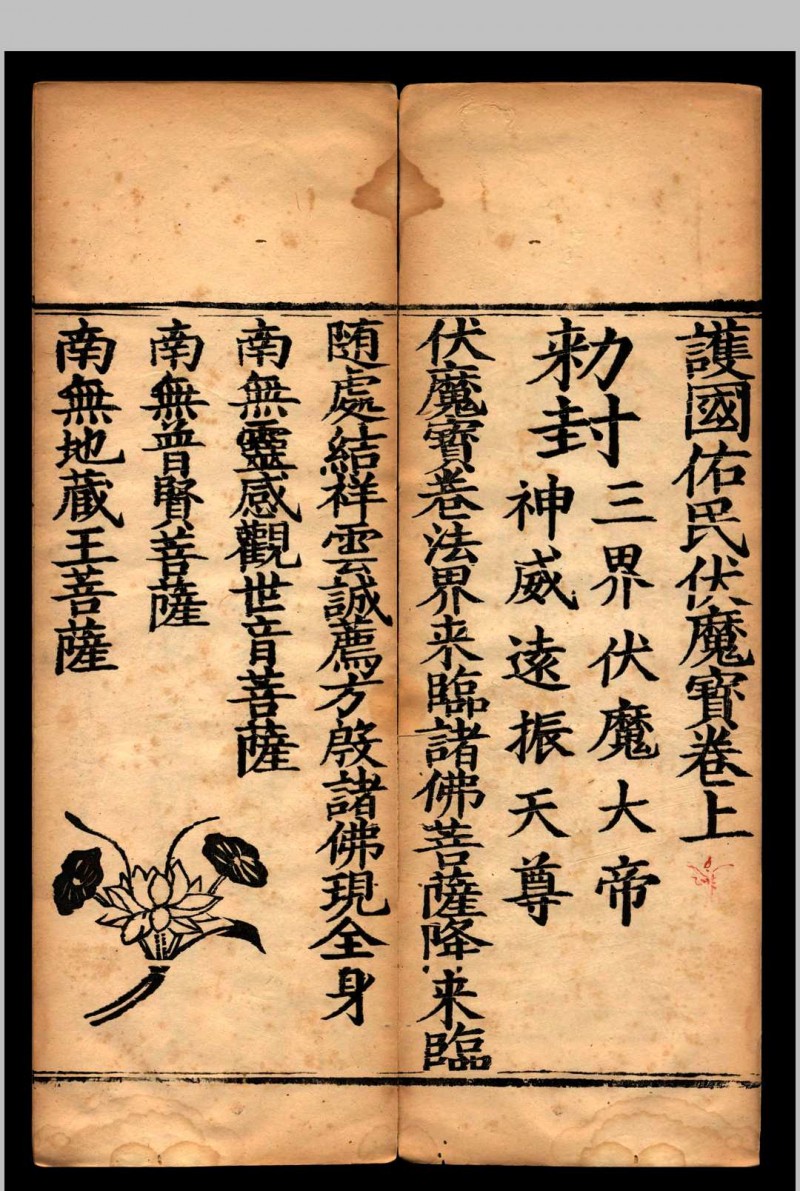 護國佑民伏魔寶卷上
勑封
三界伏魔大帝
神威遠振天尊
伏魔寶卷法界来臨諸佛菩薩降来臨
随處結祥雲誠薦方殷諸佛現全身
南無靈感觀世音菩薩
南無普賢菩薩
南無地藏王菩薩